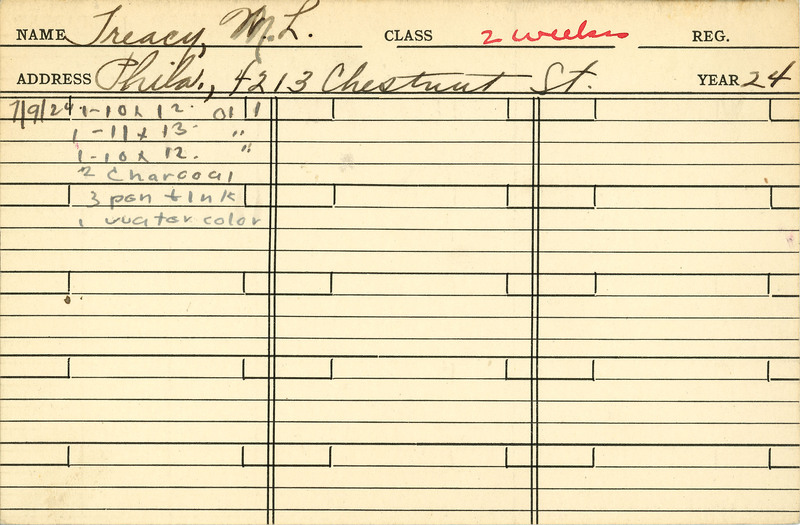 NAME Treacy, M. L. CLASS 2 weeks REG.
ADDRESS Phila., 4213 Chestnut St. YEAR 24
7/9/24 1-10 x 12. oil
1-11 x 13. "
1-10 x 12. "
2 Charcoal
3 pen & Ink
1 water color